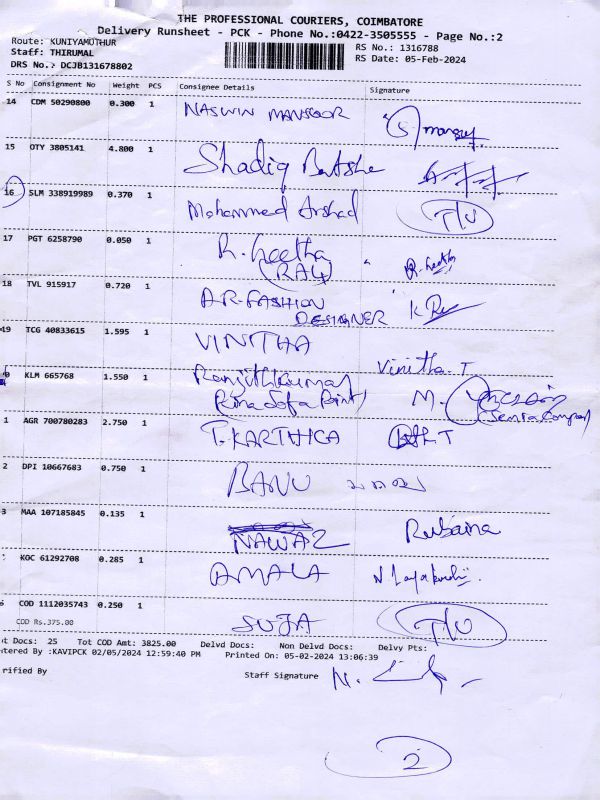 THE PROFESSIONAL COURIERS, COIMBATORE
Delivery Runsheet - PCK - Phone No.:0422-3505555 - Page No.:2
Route: KUNIYAMUTHUR
Staff: THIRUMAL
DRS No.: DCJB131678802
RS No.: 1316788
RS Date: 05-Feb-2024
S No Consignment No Weight PCS Consignee Details Signature
14 CDM 50290800 0.300 1 NASWIN MANSOOR
15 OTY 3805141 4.800 1 Shadiq Batsha
16 SLM 338919989 0.370 1 Mohammed Arshad T/U
17 PGT 6258790 0.050 1 R. Geetha R. Geetha
(RAJ)
18 TVL 915917 0.720 1 A-R-FASHION
DESIGNER
19 TCG 40833615 1.595 1 VINITHA Vinitha. T
0 KLM 665768 1.550 1 Ranjithkumar
Rina Sofa Point) M.
1 AGR 700780283 2.750 1 T. KARTHICA
2 DPI 10667683 0.750 1 BANU
3 MAA 107185845 0.135 1 NAWAZ Rubaina
KOC 61292708 0.285 1 AMALA
COD 1112035743 0.250 1 SUJA T/U
COD Rs.375.00
t Docs: 25 Tot COD Amt: 3825.00 Delvd Docs: Non Delvd Docs: Delvy Pts:
ntered By :KAVIPCK 02/05/2024 12:59:40 PM Printed On: 05-02-2024 13:06:39
rified By Staff Signature
2